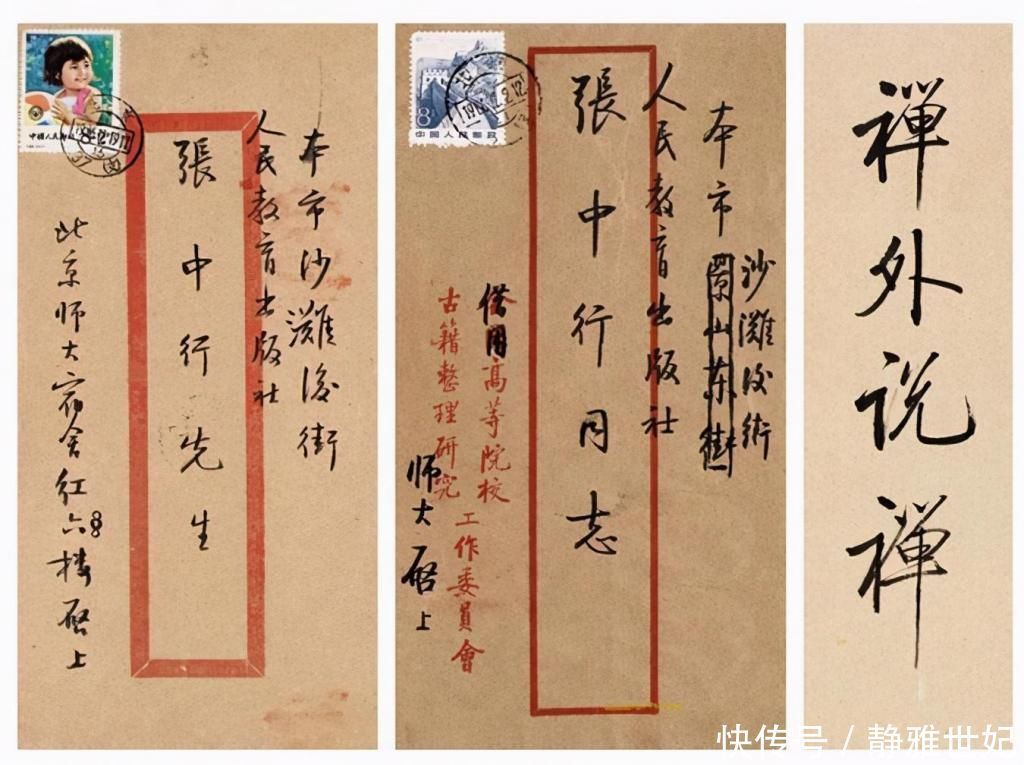 本市沙灘後街
人民教育出版社
張中行先生
北京师大宿舍红六楼启上
中國人民郵政
本市景山东街
沙灘後街
人民教育出版社
張中行同志
借用高等院校
古籍整理研究
工作委員會
师大 启上
8
中国人民邮政
禅外说禅
快传号/静雅世妃